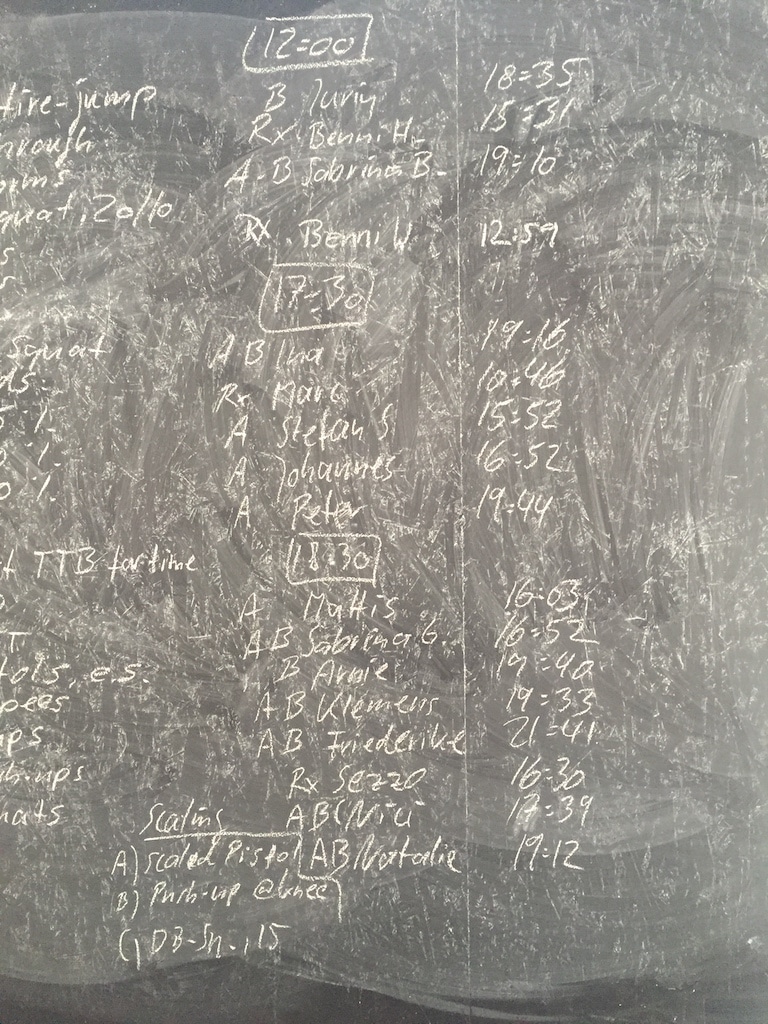 12:00
tire-jump B Juriy 18:35
hrough Rx Benni H. 15:31
orms A-B Sabrina B. 19:10
quat, 20/10
s Rx Benni W. 12:59
17:30
Squat A B Ina 19:16
ds: Rx Marc 10:46
5 %. A Stefan S. 15:52
%. A Johannes 16:52
0 %. A Peter 19:44
TTB for time 18:30
A Mattis 16:03
T AB Sabrina G. 16:52
tols, e.s. B Arnie 19:40
pees AB Klemens 19:33
ps AB Friederike 21:41
sh-ups Rx Sezzo 16:30
uats ABC Nici 17:39
Scaling
A) scaled Pistol AB Natalie 19:12
B) Push-up @knee
C) DB-Sn., 15